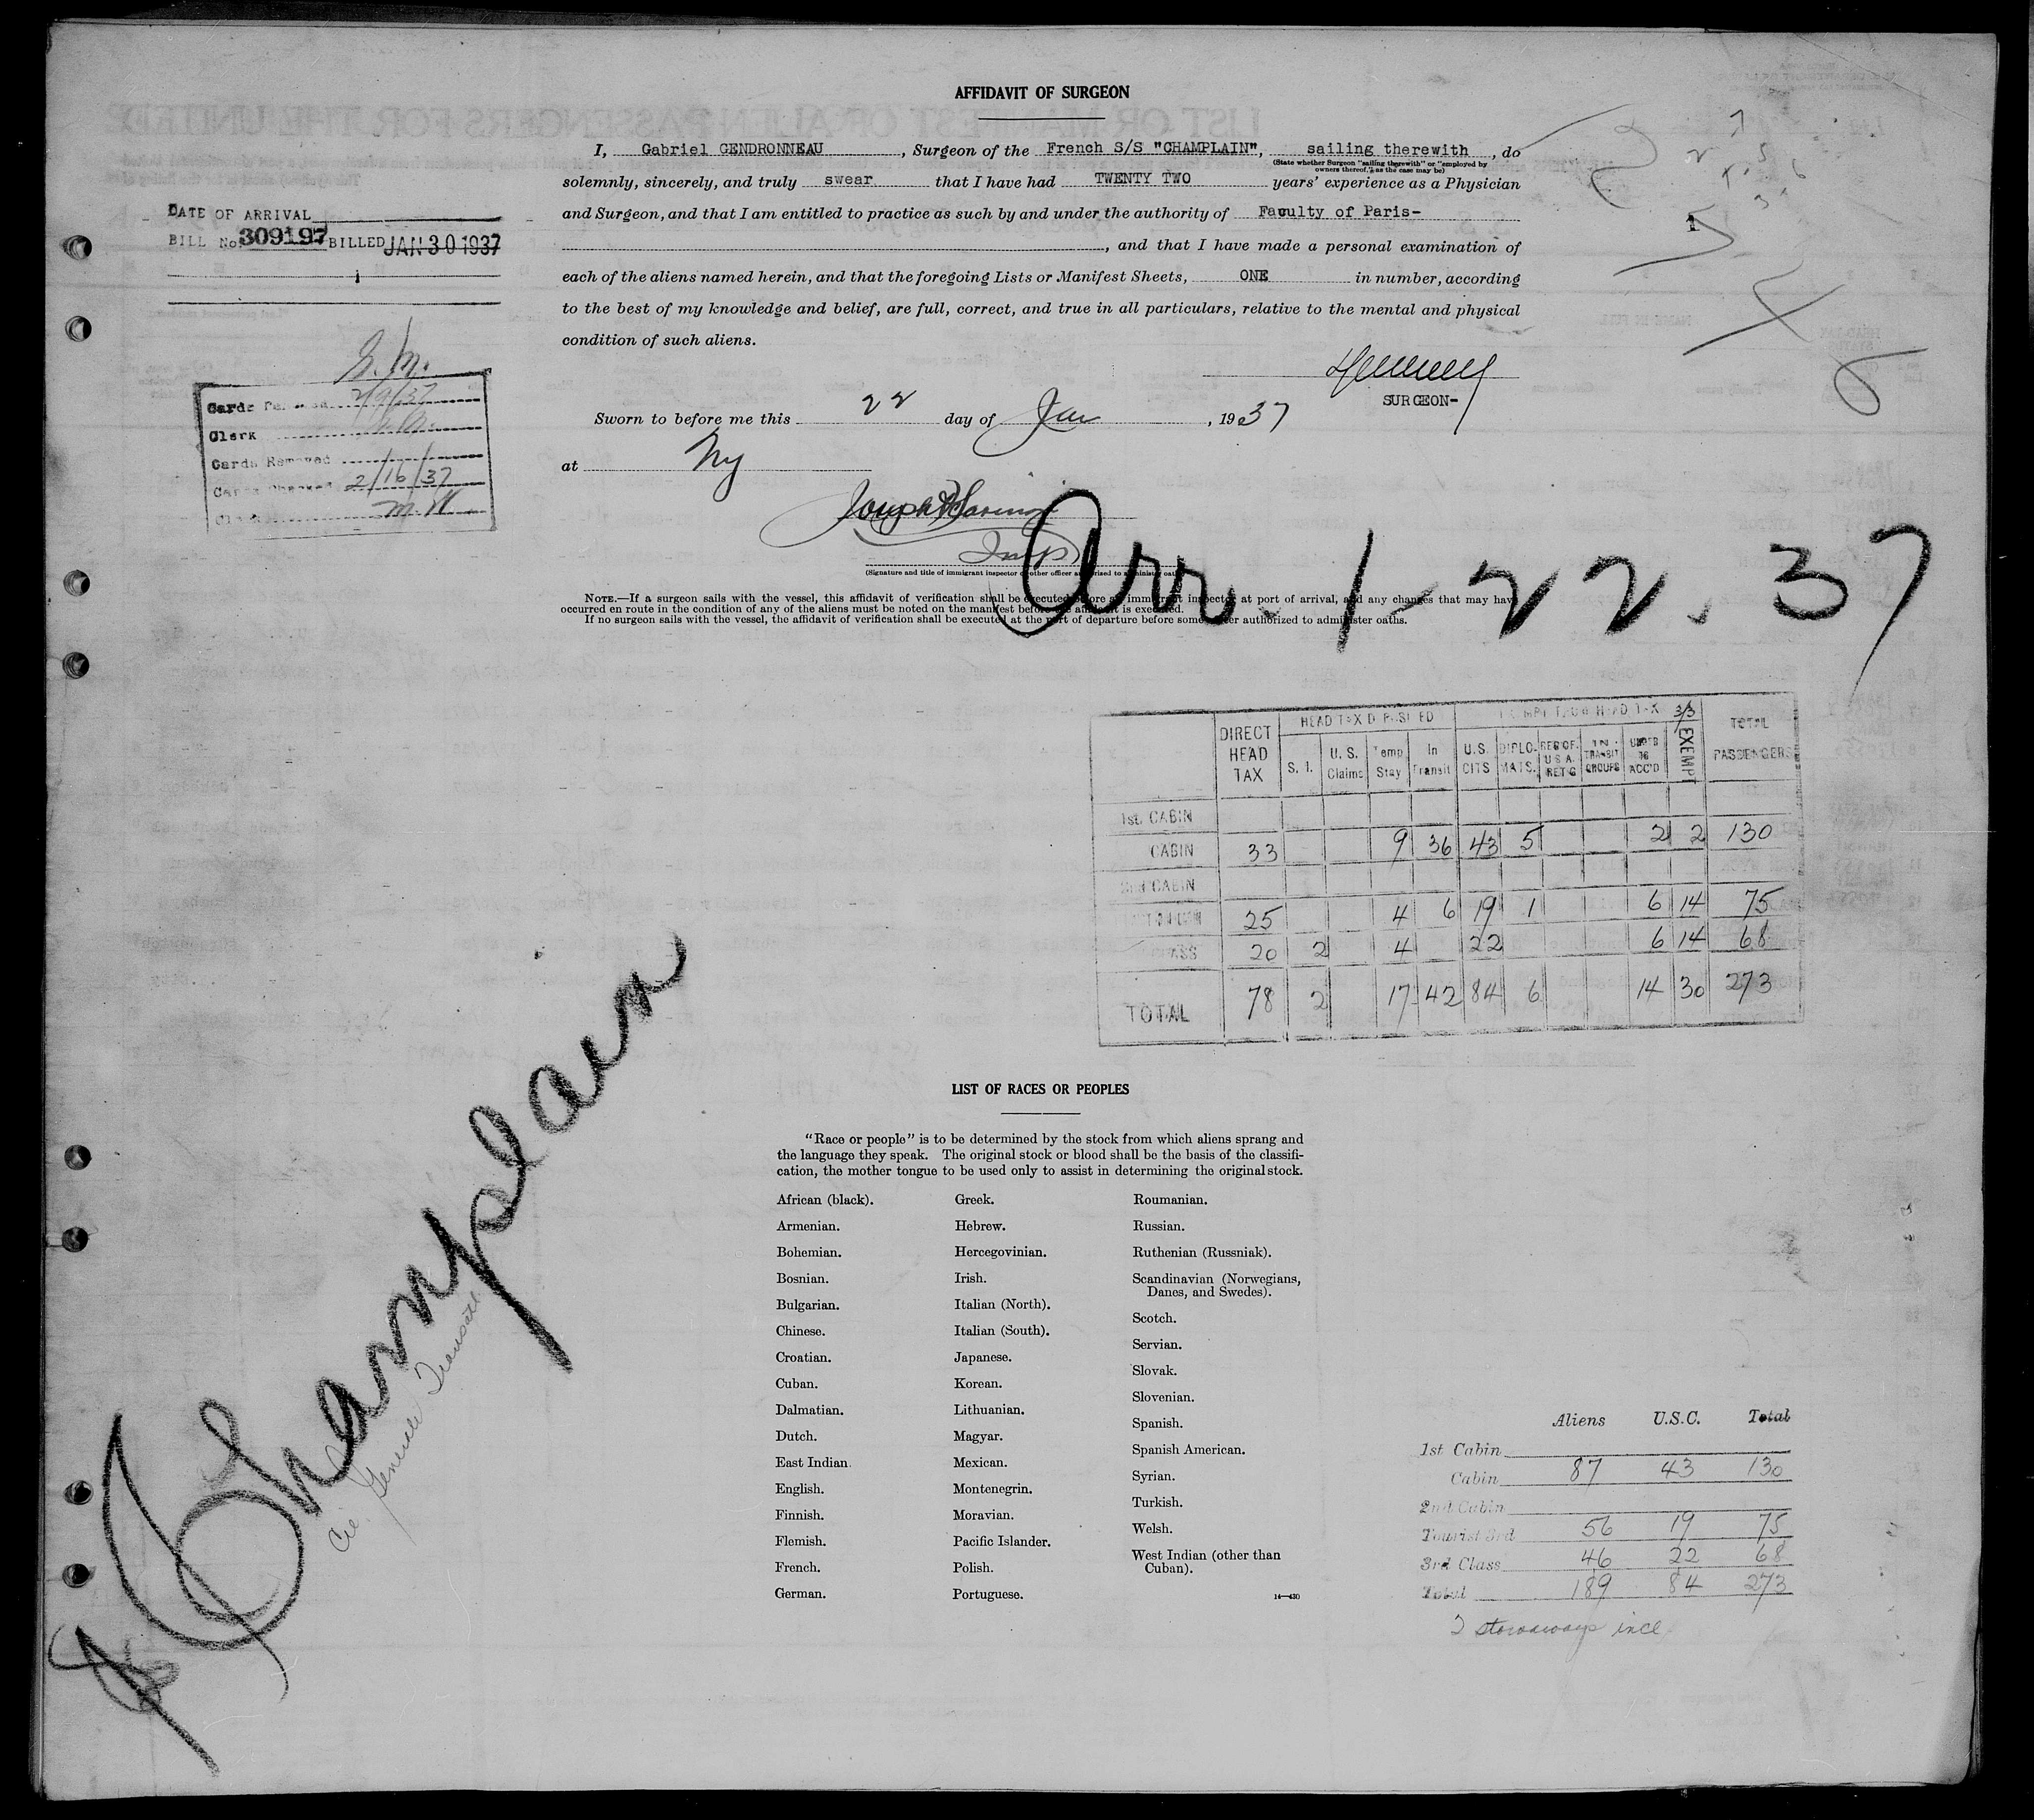 AFFIDAVIT OF SURGEON
I, Gabriel GENDRONNEAU, Surgeon of the French S/S "CHAMPLAIN", sailing therewith, do
(State whether Surgeon "sailing therewith" or "employed by
owners thereof," as the case may be)
solemnly, sincerely, and truly swear that I have had TWENTY TWO years' experience as a Physician
and Surgeon, and that I am entitled to practice as such by and under the authority of Faculty of Paris-
, and that I have made a personal examination of
each of the aliens named herein, and that the foregoing Lists or Manifest Sheets, ONE in number, according
to the best of my knowledge and belief, are full, correct, and true in all particulars, relative to the mental and physical
condition of such aliens.
SURGEON-
Sworn to before me this 22 day of Jan, 1937
at Ny
Insp
(Signature and title of immigrant inspector or other officer authorized to administer oath)
NOTE.—If a surgeon sails with the vessel, this affidavit of verification shall be executed before an immigrant inspector at port of arrival, and any changes that may have
occurred en route in the condition of any of the aliens must be noted on the manifest before the affidavit is executed.
If no surgeon sails with the vessel, the affidavit of verification shall be executed at the port of departure before some officer authorized to administer oaths.
Arr. 1-22.37
DATE OF ARRIVAL
BILL No. 309197 BILLED JAN 30 1937
G.M.
Cards 2/9/37
Clerk
Cards Removed
Cards Checked 2/16/37
Clerk M.W.
DIRECT HEAD TAX
HEAD TAX DEPOSITED
EXEMPT FROM HEAD TAX
3/3
S. I. U. S. Claims Temp Stay In Transit U.S. CITS DIPLO-MATS. RES OF. U S A. RET'G IN TRANSIT GROUPS UNDER 16 ACC'D EXEMPT TOTAL PASSENGERS
1st. CABIN
CABIN 33 9 36 43 5 2 2 130
2nd CABIN
25 4 6 19 1 6 14 75
CLASS 20 2 4 22 6 14 68
TOTAL 78 2 17 42 84 6 14 30 273
SS Champlain
Cie. Generale Transatl
LIST OF RACES OR PEOPLES
"Race or people" is to be determined by the stock from which aliens sprang and
the language they speak. The original stock or blood shall be the basis of the classifi-
cation, the mother tongue to be used only to assist in determining the original stock.
African (black).
Armenian.
Bohemian.
Bosnian.
Bulgarian.
Chinese.
Croatian.
Cuban.
Dalmatian.
Dutch.
East Indian.
English.
Finnish.
Flemish.
French.
German.
Greek.
Hebrew.
Hercegovinian.
Irish.
Italian (North).
Italian (South).
Japanese.
Korean.
Lithuanian.
Magyar.
Mexican.
Montenegrin.
Moravian.
Pacific Islander.
Polish.
Portuguese.
Roumanian.
Russian.
Ruthenian (Russniak).
Scandinavian (Norwegians,
Danes, and Swedes).
Scotch.
Servian.
Slovak.
Slovenian.
Spanish.
Spanish American.
Syrian.
Turkish.
Welsh.
West Indian (other than
Cuban).
14—430
Aliens U.S.C. Total
1st Cabin
Cabin 87 43 130
2nd Cabin
Tourist 3rd 56 19 75
3rd Class 46 22 68
Total 189 84 273
2 stowaways incl